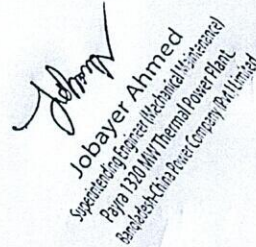 Jobayer Ahmed
Superintending Engineer (Mechanical Maintenance)
Payra 1320 MW Thermal Power Plant.
Bangladesh-China Power Company (Pvt.) Limited